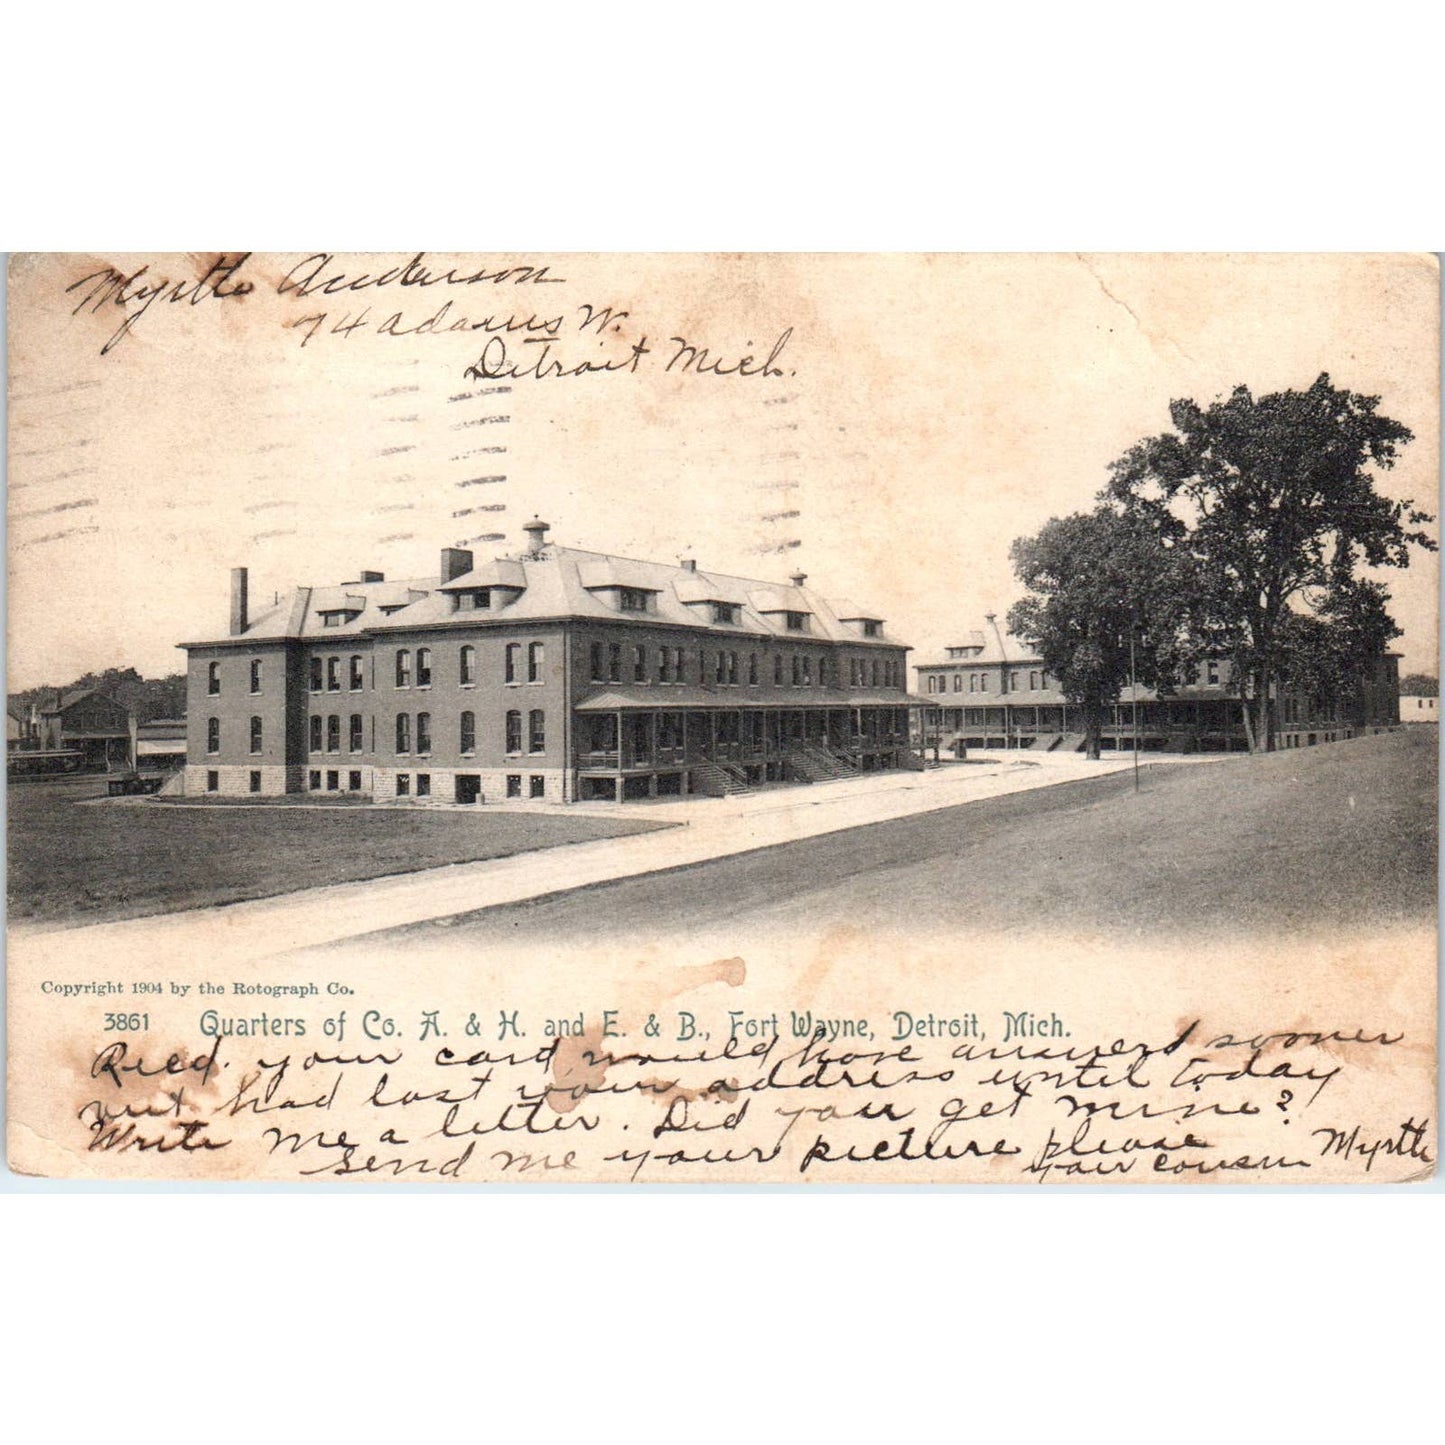 Myrtle Anderson
74 Adams W.
Detroit Mich.
Copyright 1904 by the Rotograph Co.
3861 Quarters of Co. A. & H. and E. & B., Fort Wayne, Detroit, Mich.
Recd. your card would have answerd sooner
but had lost your address until today
Write me a letter. Did you get mine?
send me your picture please
your cousin Myrtle